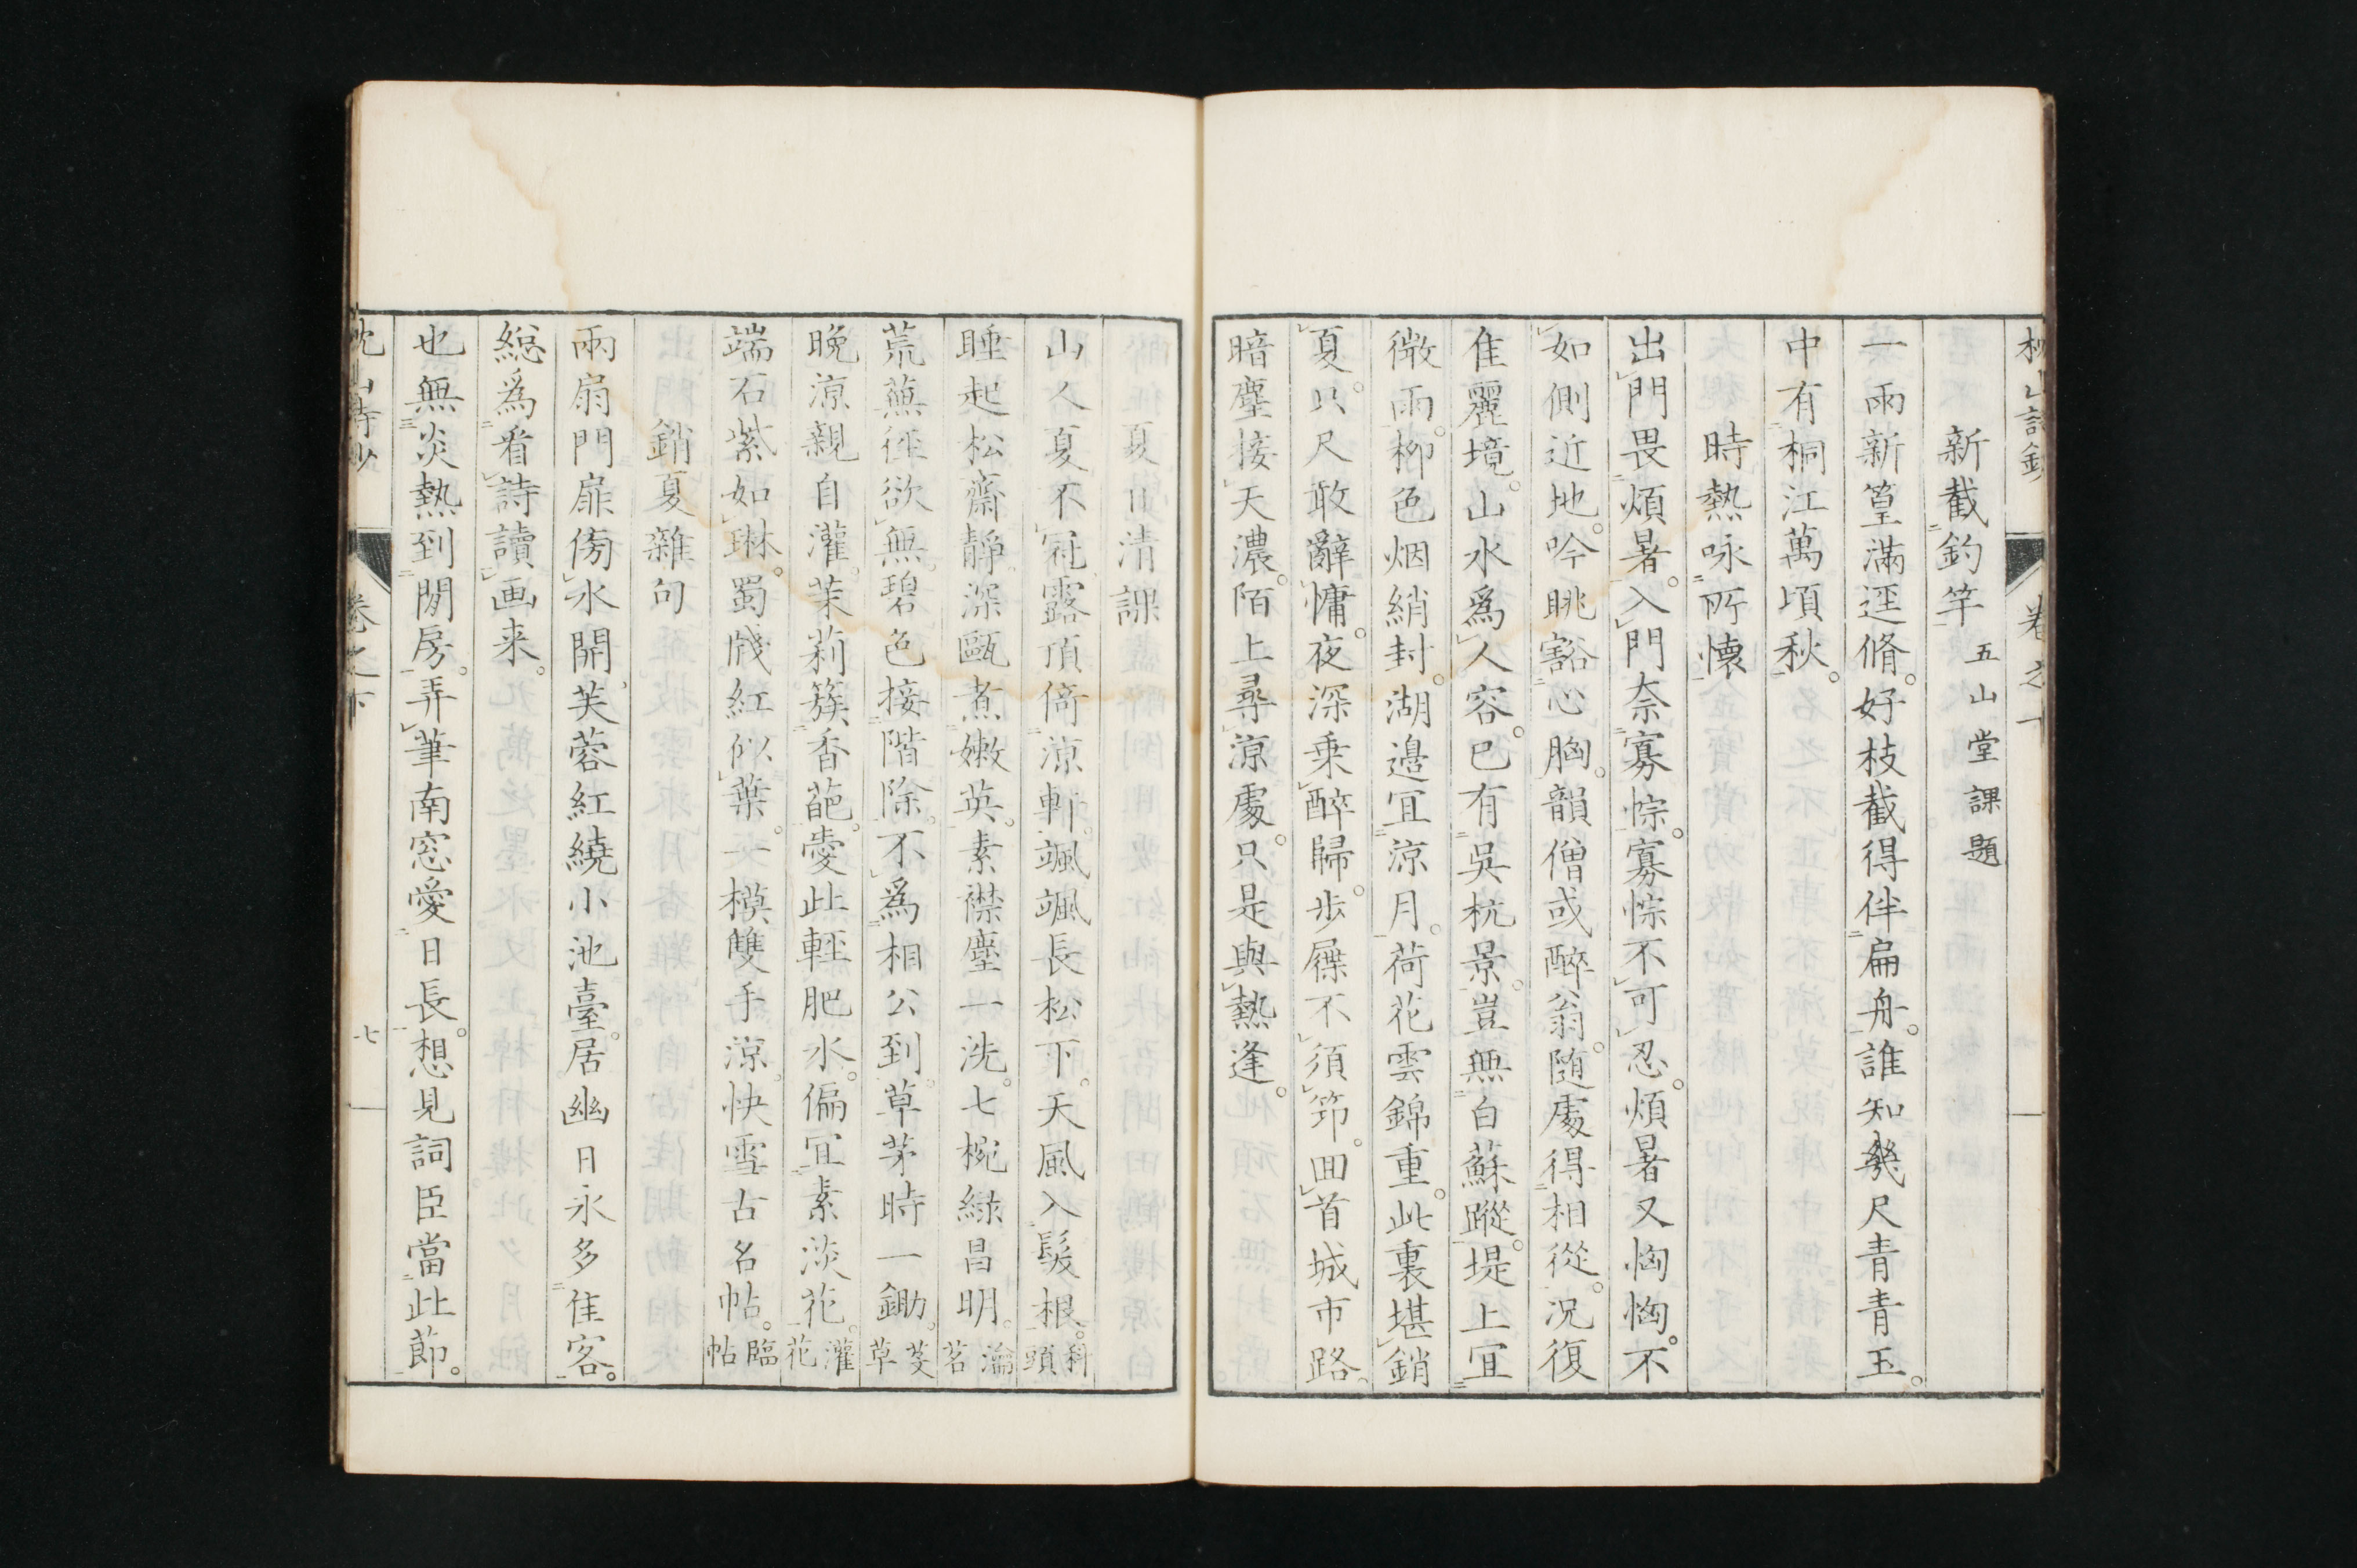 新截釣竿 五山堂課題
一雨新篁滿逕脩。好枝截得伴扁舟。誰知幾尺青青玉。
中有桐江萬頃秋。
時熱咏所懷
出門畏煩暑。入門奈寡悰。寡悰不可忍。煩暑又恟恟。不
如側近地。吟眺豁心胸。韻僧或醉翁。随處得相從。況復
佳麗境。山水爲人容。已有吳杭景。豈無白蘇蹤。堤上宜
微雨。柳色烟綃封。湖邉宜涼月。荷花雲錦重。此裏堪銷
夏。以尺敢辭慵。夜深乗醉歸。歩屧不須筇。回首城市路。
暗塵接天濃。陌上尋涼處。只是與熱逢。
夏日清課
山人夏不冠。露頂倚涼軒。颯颯長松下。天風入髮根。科頭
睡起松齋靜。深甌煮嫩英。素襟塵一洗。七椀緑昌明。瀹茗
荒蕪徑欲無。碧色接階除。不爲相公到。草茅時一鋤。芟草
晩涼親自灌。茉莉簇香葩。愛此輕肥水。偏宜素淡花。灌花
端石紫如琳。蜀牋紅似葉。一模雙手涼。快雪古名帖。臨帖
銷夏雜句
兩扇門扉傍水開。芙蓉紅繞小池臺。居幽日永多佳客。
総爲看詩讀画来。
也無炎熱到閒房。弄筆南窓愛日長。想見詞臣當此節。
卷之下
七